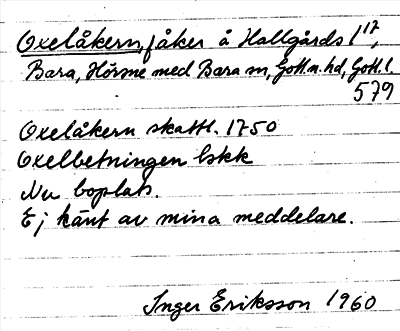 Oxelåkern, fåker å Hallgårds 1¹⁷,
Bara, Hörsne med Bara sn, Gotl.n.hd, Gotl.l.
579
Oxelåkern skattl. 1750
Oxelbetningen lskk
Nu boplats.
Ej känt av mina meddelare.
Inger Eriksson 1960